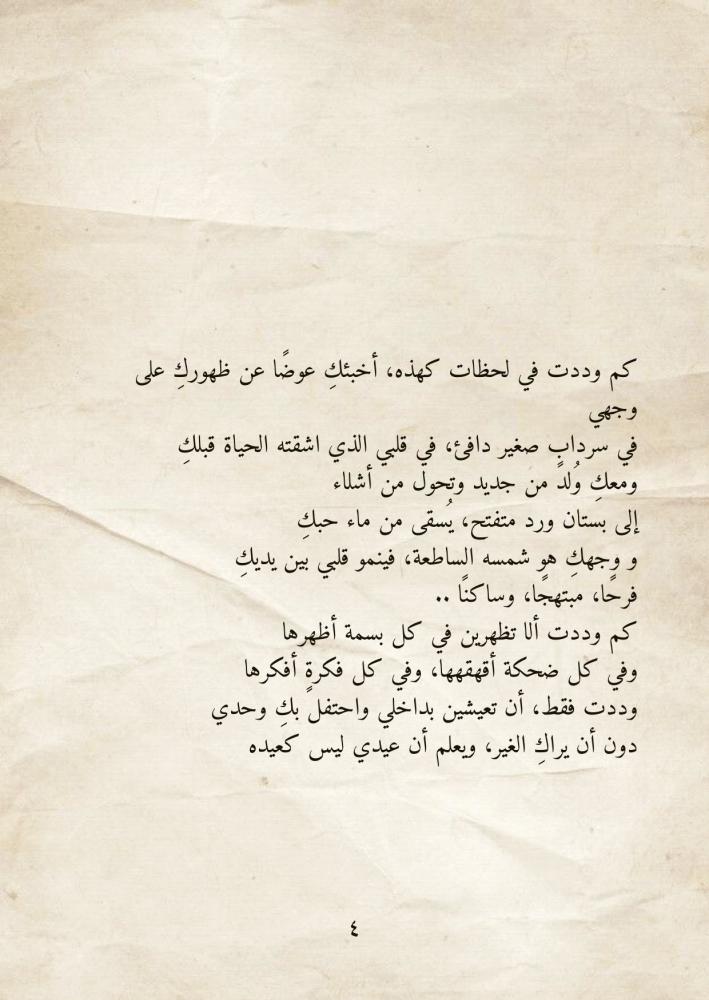 كم وددت في لحظات كهذه، أخبئكِ عوضًا عن ظهوركِ على
وجهي
في سردابٍ صغير دافئ، في قلبي الذي اشقته الحياة قبلكِ
ومعكِ وُلدَ من جديد وتحول من أشلاء
إلى بستان ورد متفتح، يُسقى من ماء حبكِ
و وجهكِ هو شمسه الساطعة، فينمو قلبي بين يديكِ
فرحًا، مبتهجًا، وساكنًا ..
كم وددت ألا تظهرين في كل بسمة أظهرها
وفي كل ضحكة أقهقهها، وفي كل فكرةٍ أفكرها
وددت فقط، أن تعيشين بداخلي واحتفل بكِ وحدي
دون أن يراكِ الغير، ويعلم أن عيدي ليس كعيده
٤